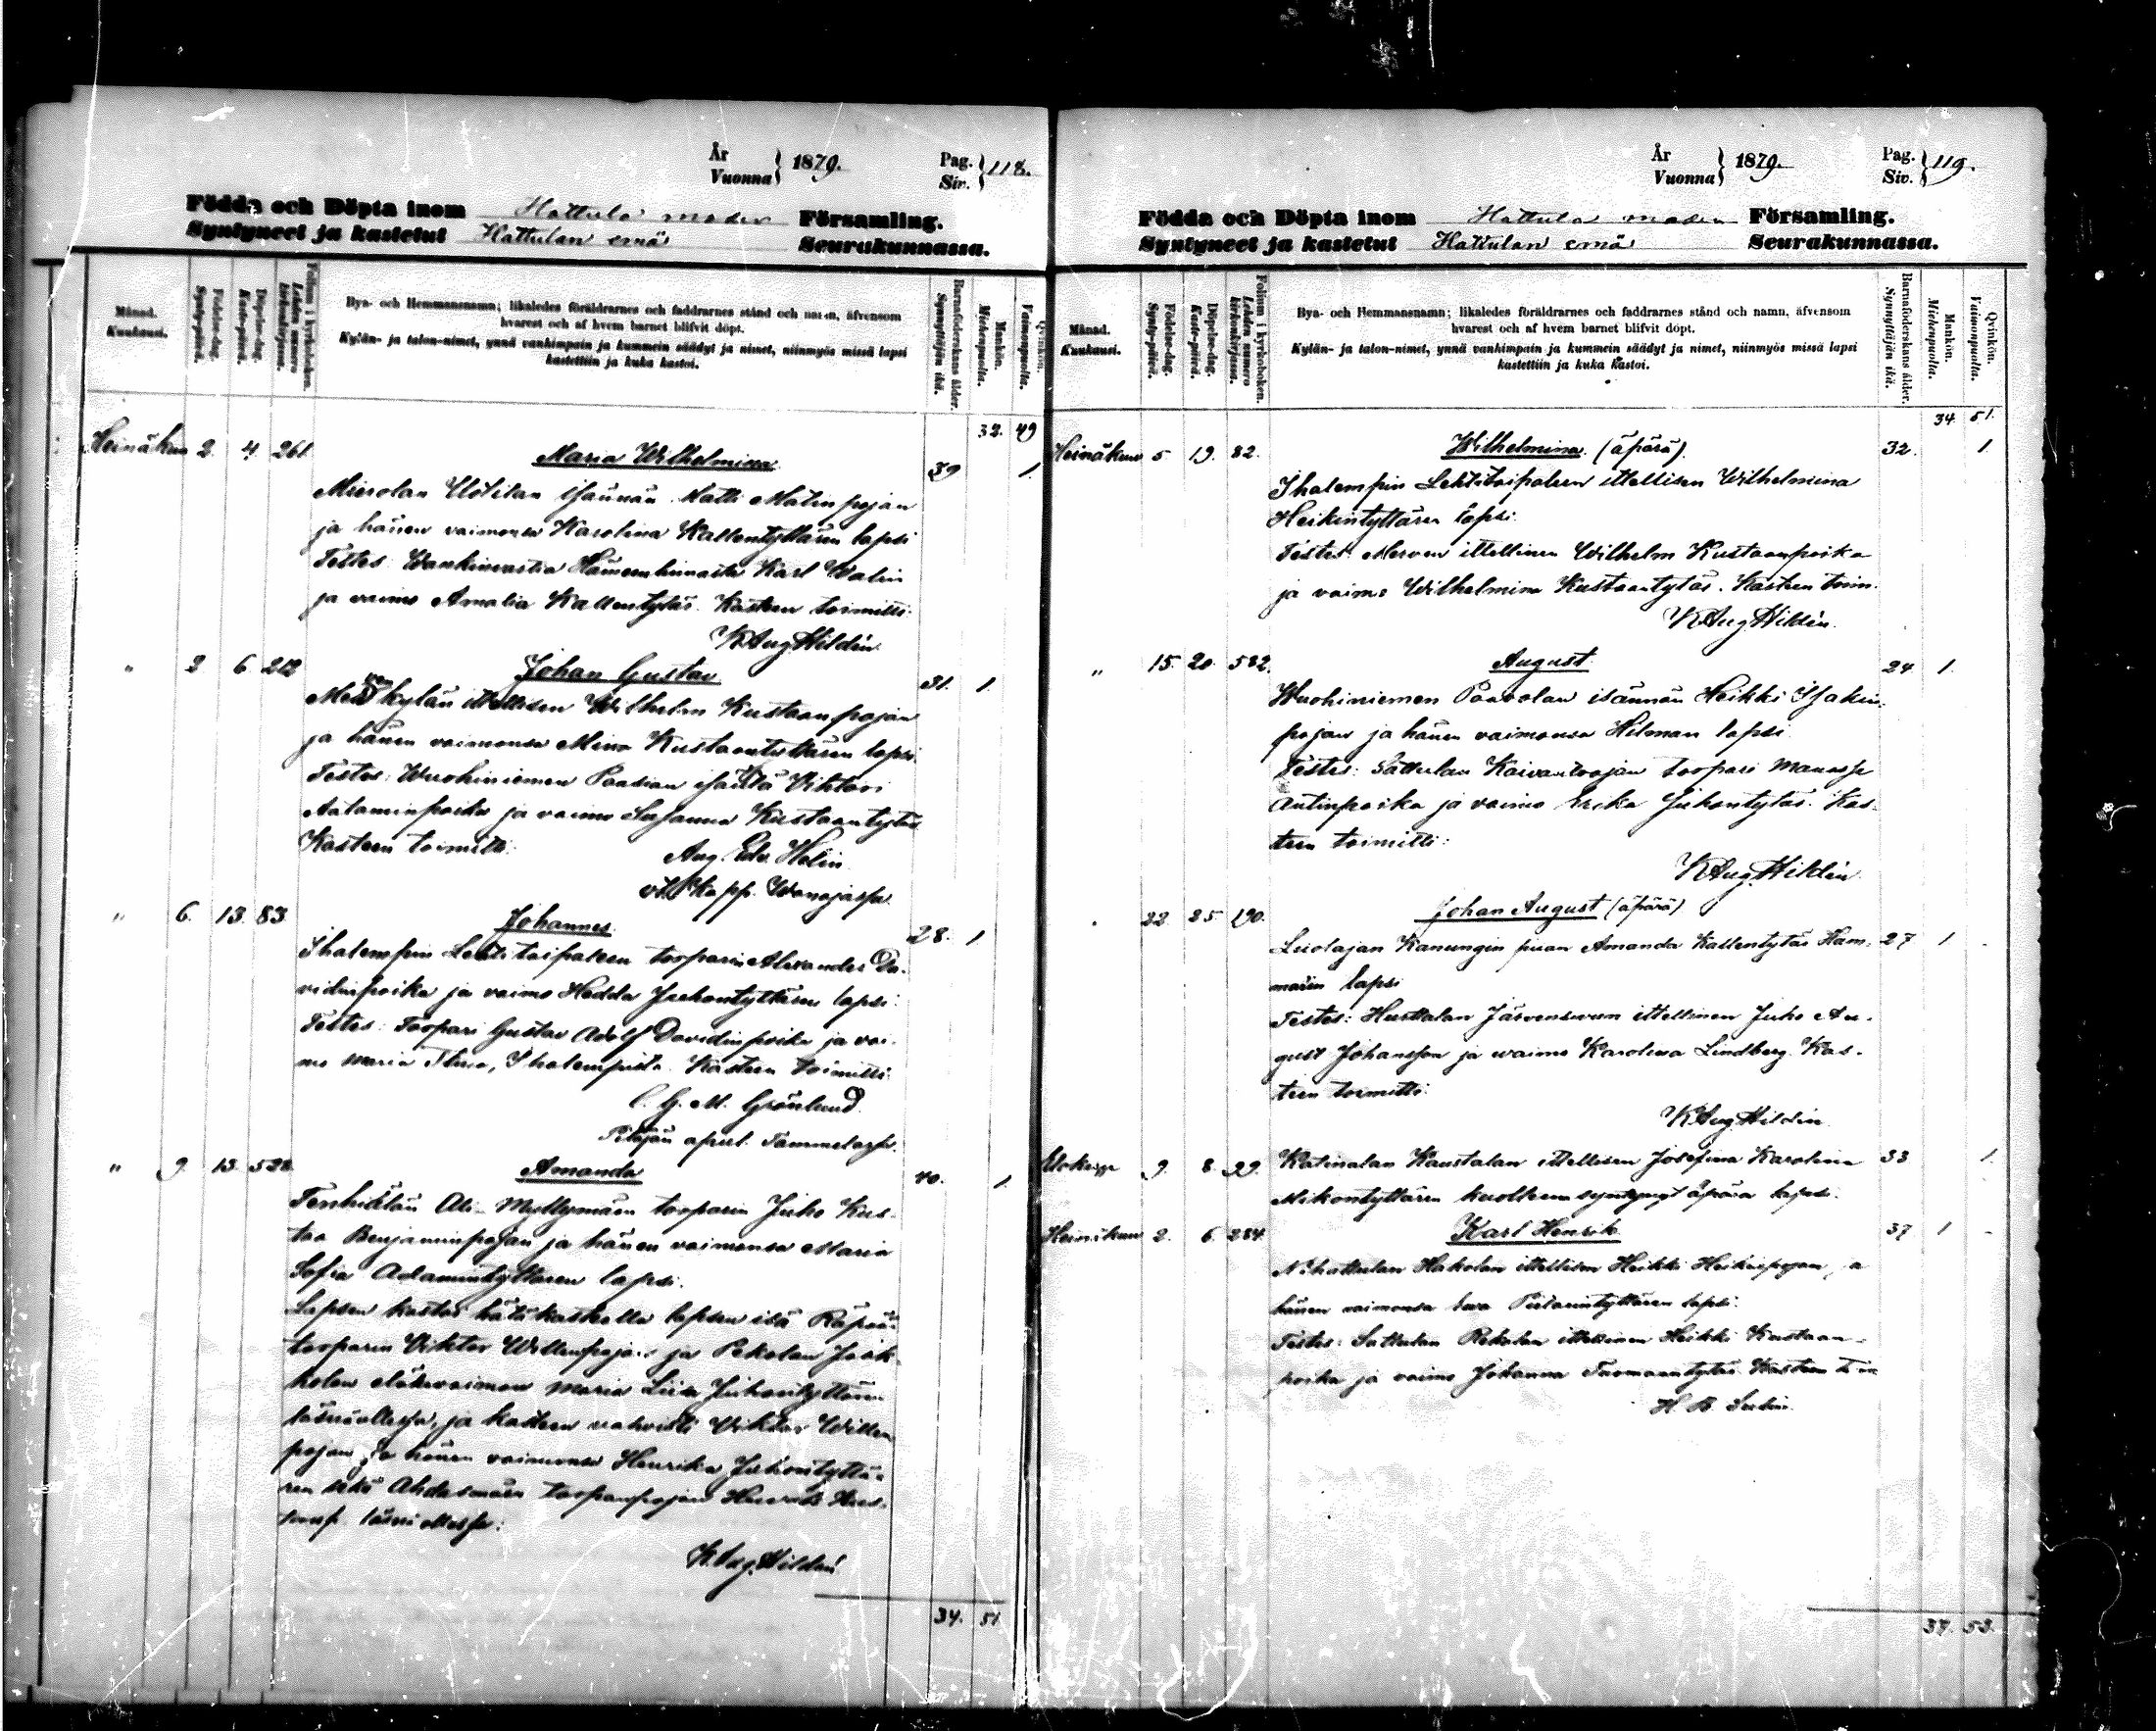 År
Vuonna } 1879.
Pag.
Siv. } 118.
Födda och Döpta inom Hattula moder Församling.
Syntyneet ja kastetut Hattulan emä Seurakunnassa.
Månad.
Kuukausi.
Födelse-dag.
Synty-päivä.
Döpelse-dag.
Kaste-päivä.
Folium i kyrkoboken.
Lehden numero kirkonkirjassa.
Bya- och Hemmansnamn; likaledes föräldrarnes och faddrarnes stånd och namn, äfvensom
hvarest och af hvem barnet blifvit döpt.
Kylän- ja talon-nimet, ynnä vanhimpain ja kummein säädyt ja nimet, niinmyös missä lapsi
kastettiin ja kuka kastoi.
Barnaföderskans ålder.
Synnyttäjän ikä.
Mankön.
Miehenpuolia.
Qvinkön.
Vaimonpuolia.
32. 49
Heinäkuu 2. 4. 261. Maria Wilhelmina 39 1.
Mierolan Uotilan isännän Matti Matinpojan
ja hänen vaimonsa Karolina Kallentyttären lapsi
Testes: Wankivartia Hämeenlinnasta Karl Walin
ja vaimo Amalia Kallentytär. Kasteen toimitti:
K Aug Hildén
" 2 6. 212 Johan Gustav 31. 1.
Merven kylän ittellisen Wilhelm Kustaanpojan
ja hänen vaimonsa Mina Kustaantyttären lapsi.
Testes: Wuohiniemen Paasian isäntä Viktori
Aataminpoika ja vaimo Susanna Kustaantytär
Kasteen toimitti:
Aug. Edv. Helin
vt. Kapp. Wanajassa.
" 6. 13. 83. Johannes 28. 1.
Ihalempin Lehtitaipaleen tooparin Alexander Da-
vidinpoika ja vaimo Hedda Juhontyttären lapsi:
Testes: Toopari Gustav Adolf Davidinpoika ja vai-
mo Maria Stina, Ihalempista. Kasteen toimitti:
C. G. M. Grönlund
Pitäjän apul. Tammelassa.
" 9. 13. 528. Amanda 40. 1.
Tenhiälän Ali-Myllymäen tooparin Juho Kus-
taa Benjaminpojan ja hänen vaimonsa Maria
Sofia Adamintyttären lapsi.
Lapsen kastoi hätäkasteella lapsen isä
tooparin Viktor Willenpojan ja Pekolan Jaak-
kolan eläkevaimon Maria Liisa Juhontyttären
läsnäollessa, ja kasteen vahvisti Viktor Willen
pojan ja hänen vaimonsa Henrika Juhontyttä-
ren sekä Ahdasmäen tooparipojan
läsnäollessa:
K. Aug. Hildén
34. 51.
År
Vuonna } 1879.
Pag.
Siv. } 119.
Födda och Döpta inom Hattula moder Församling.
Syntyneet ja kastetut Hattulan emä Seurakunnassa.
Månad.
Kuukausi.
Födelse-dag.
Synty-päivä.
Döpelse-dag.
Kaste-päivä.
Folium i kyrkoboken.
Lehden numero kirkonkirjassa.
Bya- och Hemmansnamn; likaledes föräldrarnes och faddrarnes stånd och namn, äfvensom
hvarest och af hvem barnet blifvit döpt.
Kylän- ja talon-nimet, ynnä vanhimpain ja kummein säädyt ja nimet, niinmyös missä lapsi
kastettiin ja kuka kastoi.
Barnaföderskans ålder.
Synnyttäjän ikä.
Mankön.
Miehenpuolia.
Qvinkön.
Vaimonpuolia.
34. 51.
Heinäkuu 5. 19. 82. Wilhelmina (äpärä) 32. 1.
Ihalempin Lehtitaipaleen ittellisen Wilhelmina
Heikintyttären lapsi.
Testes: Merven ittellinen Wilhelm Kustaanpoika
ja vaimo Wilhelmina Kustaantytär. Kasteen toim.
K Aug. Hildén.
" 15. 20. 582. August. 24 1.
Wuohiniemen Paavolan isännän Heikki Isakin-
pojan ja hänen vaimonsa Hilman lapsi
Testes: Sattulan Kaivantoojan toopari Manasse
Antinpoika ja vaimo Erika Juhontytär. Kas-
teen toimitti:
K Aug. Hildén.
22. 25. 190. Johan August (äpärä)
Luolajan Kanungin piian Amanda Kallentytär Ham- 27 1
marin lapsi
Testes: Hurttalan Järvensuun ittellinen Juho Au-
gust Johansson ja waimo Karolina Lindberg. Kas-
teen toimitti:
K Aug. Hildén
Elokuu 9. 8. 29. Katinalan Kaustalan ittellisen Josefina Karolina 33 1.
Mikontyttären kuolleena syntynyt äpärä lapsi.
Heinäkuu 2. 6. 284 Karl Henrik 37 1
N:hattulan Hakolan ittellisen Heikki Heikinpojan ja
hänen vaimonsa Eva Pietarintyttären lapsi.
Testes: Sattulan Rekolan ittellinen Heikki Kustaan-
poika ja vaimo Johanna Tuomaantytär. Kasteen toim
H. B.
37. 53.